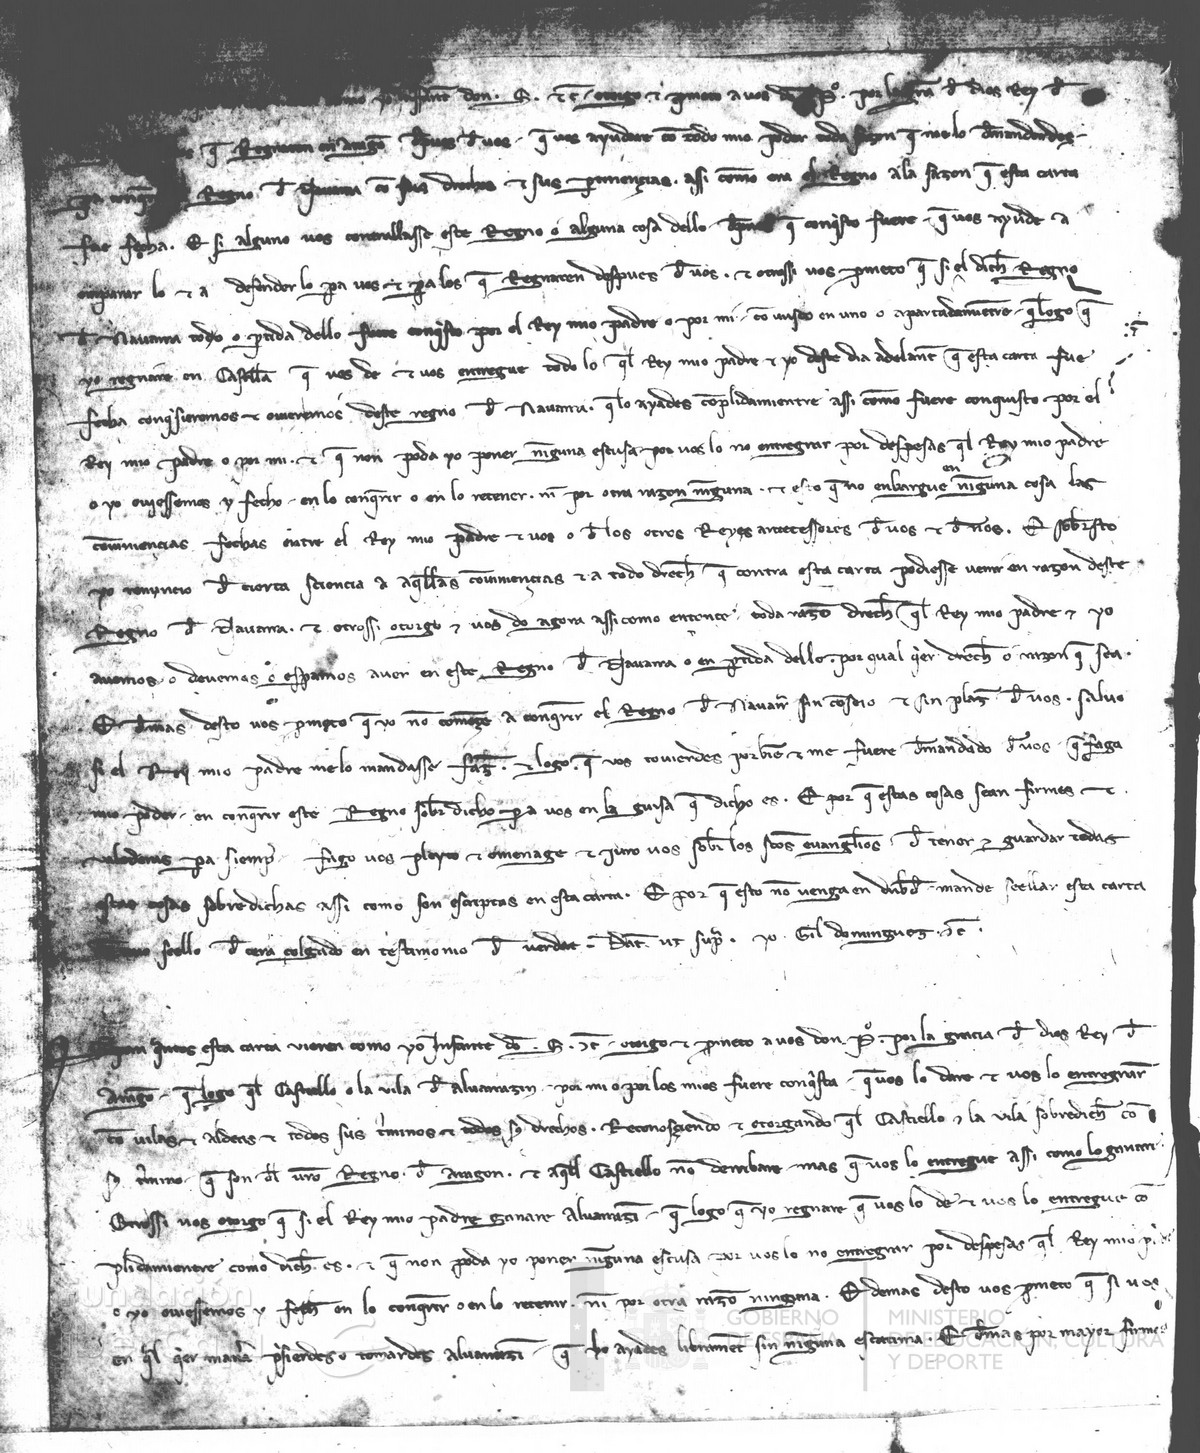 don . S . otorgo e prometo a vos don P.º por la gra d dios Rey d
q Regnaren en aragon depues d vos . q vos ayudare co todo mio poder toda sazon q me lo demandardes .
pa conq Regno d Navarra co sus drechos e sus pertinenças . assi como era el Regno a la sazon q esta carta
fue fecha . E si alguno vos contrallasse este Regno o alguna cosa dello depues q conqisto fuere . q vos ayude a
amparar lo e a defender lo pa vos e pa los q Regnaren despues d vos . e otrossi vos pmeto q si el dich Regno
d Navarra todo o ptida dello fuere conqisto por el Rey mio padre o por mi . co vusco en uno o apartadamientre . q luego q
yo regnare en Castiella q vos de e vos entregue todo lo ql Rey mio padre e yo deste dia adelant q esta carta fue
fecha conqsieremos e ovieremos deste regno d Navarra . q lo ayades coplidamientre assi como fuere conquisto por el
Rey mio padre o por mi . e q non poda yo poner niguna escusa por vos lo no entregrar por despesas ql Rey mio padre
o yo oviessemos y fecho en lo conqrir o en lo retener . ni por otra razon niguna . e esto q no enbargue en niguna cosa las
coviniencias fechas entre el Rey mio padre e vos o d los otros Reyes antecessores d vos e d nos . E sobresto
yo renuncio d cierta sciencia a aqllas coviniencias e a todo drech q contra esta carta podiesse venir en razon deste
Regno d Navarra . e otrossi otorgo e vos do agora assi como entonce toda razo drech ql Rey mio padre e yo
avemos o devemos o espamos aver en este Regno d Navarra o en ptida dello . por qual qier drech o razon q sea .
E demas desto vos pmeto q yo no comeze a conqrir el Regno d Navarr sin consejo e sin plaz d vos . salvo
si el Rey mio padre me lo mandasse faz . e logo q vos tovierdes por bie e me fuere demandado d vos q faga
mio poder en conqrir este Regno sobr dicho pa vos en la guisa q dicho es . E por q estas cosas sean firmes e
valederas pa siempr fago vos pleyto e omenage e juro vos sobr los stos evanglios d tener e guardar todas
estas cosas sobredichas assi como son escriptas en esta carta . E por q esto no venga en dubd mande seellar esta carta
mio seello d cera colgado en testimonio d verdat . Dat ut supr . yo Gil dominguez .
qntos esta carta vieren como yo Infante do . S . otorgo e pmeto a vos don P.º por la gracia d dios Rey d
Arago . q luego ql Castiello o la vila d alvarrazin . por mi o por los mios fuere conqista q vos lo dare e vos lo entregrar
co vilas e aldeas e todos sus tminos e todos sos drechos . Reconosçiendo e otorgando ql Castiello e la vila sobredich co
so tmino q son dl vro Regno d aragon . e aql Castiello no derribare mas q vos lo entregue assi como lo ganare .
Otrossi vos otorgo q si el Rey mio padre ganare Alvarrazi q logo q yo regnare q vos lo de e vos lo entregue co
plidamientre como dich es . e q non poda yo poner niguna escusa por vos lo no entregrar por despesas ql Rey mio
o yo oviessemos y fech en lo conqrir o en lo retener . ni por otra razo ninguna . E demas desto vos pmeto q si vos
en ql qier manera prisierdes o tomardes alvarrazi q lo ayades librament sin niguna estatima . E demas por mayor firme
GOBIERNO DE ESPAÑA
MINISTERIO DE EDUCACIÓN, CULTURA Y DEPORTE